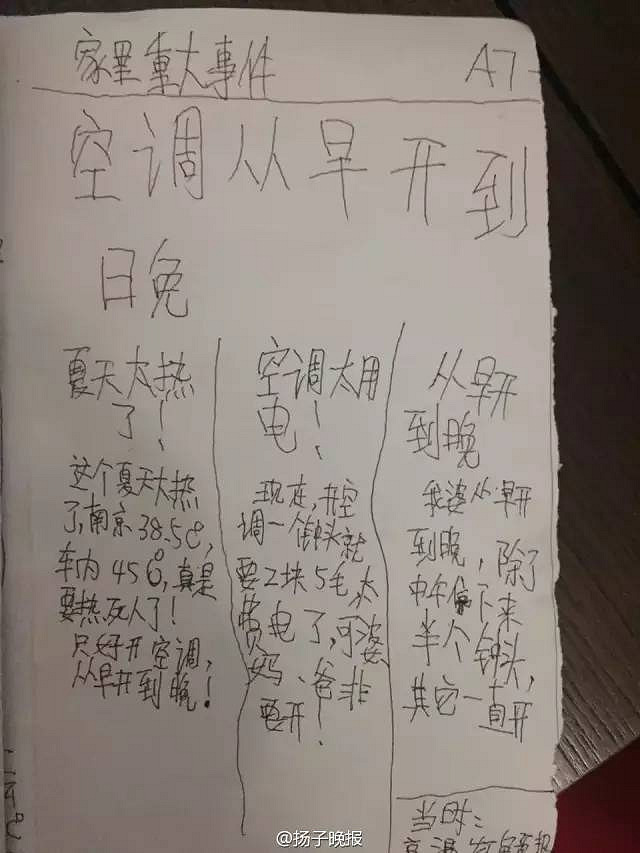 家里重大事件 A7
空调从早开到
晚
夏天太热
了!
这个夏天太热
了,南京38.5℃,
车内45℃,真是
要热死人了!
只好开空调,
从早开到晚!
空调太用
电!
现在,开空
调一个钟头就
要2块5毛,太
费电了,可婆
妈、爸非
要开!
从早开
到晚
我婆从早开
到晚,除了
中午停下来
半个钟头,
其它一直开
当时:
@扬子晚报